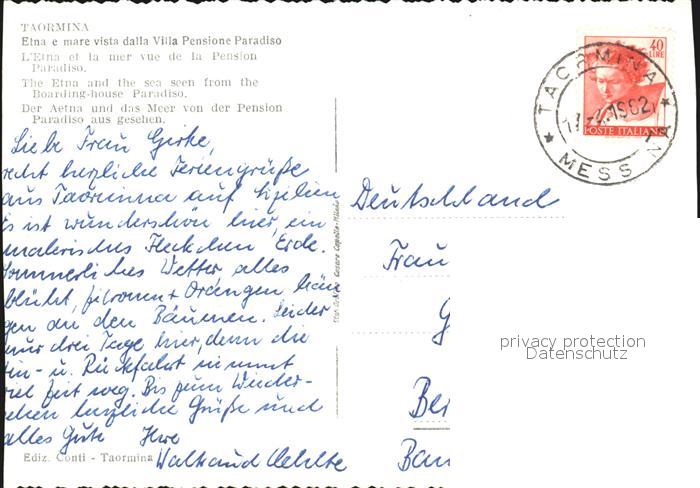 TAORMINA
Etna e mare vista dalla Villa Pensione Paradiso
L'Etna et la mer vue de la Pension
Paradiso.
The Etna and the sea seen from the
Boarding-house Paradiso.
Der Aetna und das Meer von der Pension
Paradiso aus gesehen.
Liebe Frau Girke,
recht herzliche Feriengrüße
aus Taormina auf Sizilien
Es ist wunderschön hier, ein
malerisches Fleckchen Erde.
Sommerliches Wetter, alles
blüht, Zitronen + Orangen hän
gen an den Bäumen. Leider
nur drei Tage hier, denn die
Hin- u. Rückfahrt nimmt
viel Zeit weg. Bis zum Wieder-
sehen herzliche Grüße und
alles Gute Ihre
Waltraud
Ediz. Conti - Taormina
40
LIRE
POSTE ITALIANE
TAORMINA
MESSINA
Deutschland
Frau
G
Be
privacy protection
Datenschutz